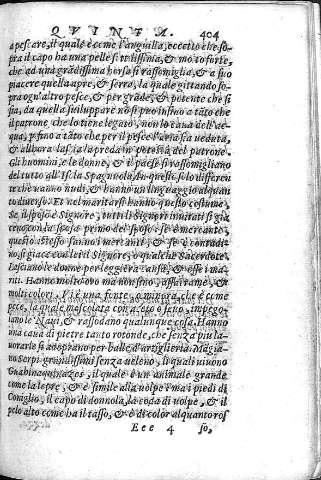 QVINTA. 404
a pescare, il quale è come l'anguilla, eccetto che so
pra il capo ha una pelle sì fortissima, & molto forte,
che ad una grãdissima borsa si rassomiglia, & a suo
piacere quella apre, & serra, la quale gittando so-
pra ogn'altro pesce, per grãde, & potente che si
sia, da quella sviluppare nõ si può infino a tãto che
il patrone, che lo tiene legato, non lo cava dell'ac
qua, & fino a tãto che per il pesce l'aria sia veduta,
& allhora lascia la preda in potestà del patrone.
Gli huomini, e le donne, & il paese si rassomigliano
del tutto all'Isola Spagnuola, in questo solo differen
ti che vanno nudi, & hanno un linguaggio alquan
to diverso. Et nel maritarsi hanno questo costume,
Se il sposo è Signore, tutti li signori invitati si gia
cciono con la sposa primo del sposo, se è mercante,
questo istesso fanno i mercanti, & se è contadi-
no, si giace con lei il Signore, o qualche Sacerdote.
Lasciano le donne per leggiera causa, & esse i ma-
riti. Hanno molto oro ma non fino, assai rame, &
molti colori. Vi è una fonte, o minera, che è come
pece, la quale mescolata con aceto o seuo, impego-
lano le Navi, & rassodano qualunque cosa. Hanno
una cava di pietre tanto rotonde, che senza più la-
vorarle si adoprano per balle d'artiglieria. Magia
no serpi grandissimi senza veleno, li quali vivono
Guabiniquinazes, il quale è un animale grande
come la lepre, & è simile alla volpe; ma i piedi di
Coniglio, il capo di donnola, la coda di volpe, & il
pelo alto come ha il tasso, & è di color alquanto ros
Eee 4 so,